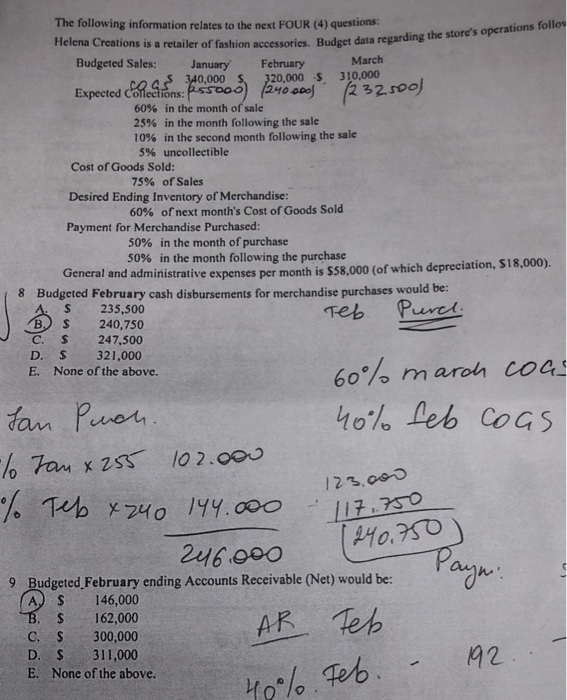 The following information relates to the next FOUR (4) questions:
Helena Creations is a retailer of fashion accessories. Budget data regarding the store's operations follow
Budgeted Sales: January February March
$ 340,000 $ 320,000 $ 310,000
COGS (255000) (240.000) (232500)
Expected Collections:
60% in the month of sale
25% in the month following the sale
10% in the second month following the sale
5% uncollectible
Cost of Goods Sold:
75% of Sales
Desired Ending Inventory of Merchandise:
60% of next month's Cost of Goods Sold
Payment for Merchandise Purchased:
50% in the month of purchase
50% in the month following the purchase
General and administrative expenses per month is $58,000 (of which depreciation, $18,000).
8 Budgeted February cash disbursements for merchandise purchases would be:
A. $ 235,500
B. $ 240,750
C. $ 247,500
D. $ 321,000
E. None of the above.
Feb Purch.
60% march COGS
40% feb COGS
Jan Purch.
% Jan x 255 102.000
% Feb x 240 144.000
246.000
123.000
117.750
(240.750)
Paym.
9 Budgeted February ending Accounts Receivable (Net) would be:
A. $ 146,000
B. $ 162,000
C. $ 300,000
D. $ 311,000
E. None of the above.
AR Feb
40% Feb. - 192